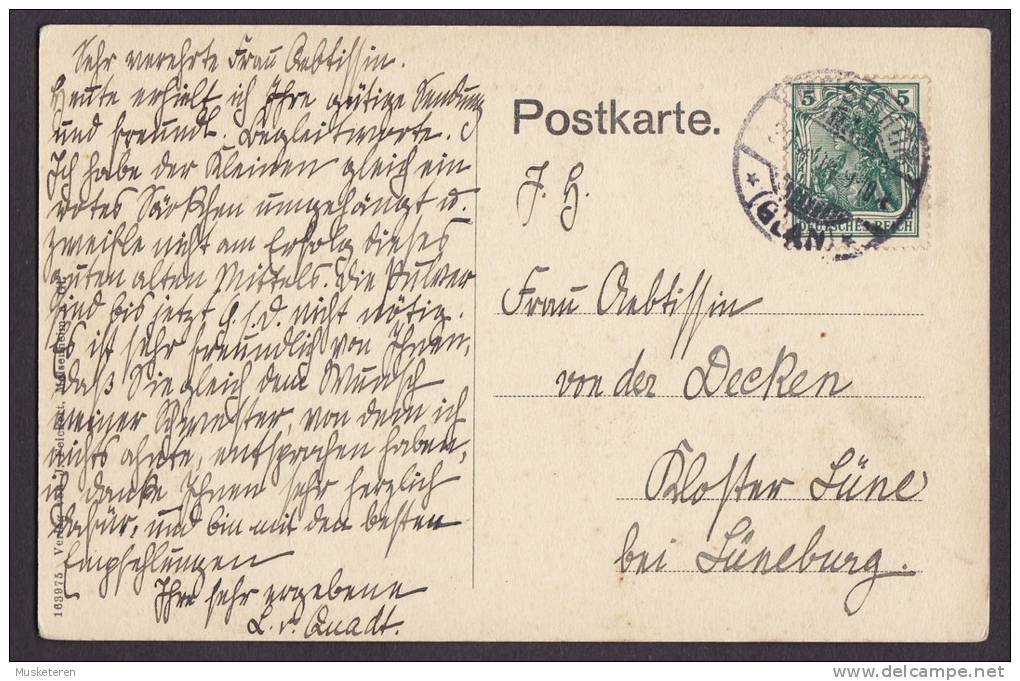 Sehr verehrte Frau Aebtissin.
Heute erhielt ich Ihre gütige Sendung
und freundl. Begleitworte.
Ich habe der Kleinen gleich ein
rotes Säckchen umgehängt u.
zweifle nicht am Erfolg dieses
guten alten Mittels. Die Pulver
sind bis jetzt G.s.d. nicht nötig.
Es ist sehr freundlich von Ihnen,
daß Sie gleich dem Wunsch
meiner Schwester, von dem ich
nichts ahnte, entsprochen haben,
u. danke Ihnen sehr herzlich
dafür, und bin mit den besten
Empfehlungen
Ihre sehr ergebene
L. v. Quadt.
163975 Verlag von Meisenheim
Postkarte.
J. H.
Frau Aebtissin
von der Decken
Kloster Lüne
bei Lüneburg.
5 5
DEUTSCHES REICH
(GLAN)
Musketeren
www.delcampe.net